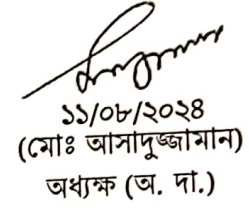 ১১/০৮/২০২৪
(মোঃ আসাদুজ্জামান)
অধ্যক্ষ (অ. দা.)